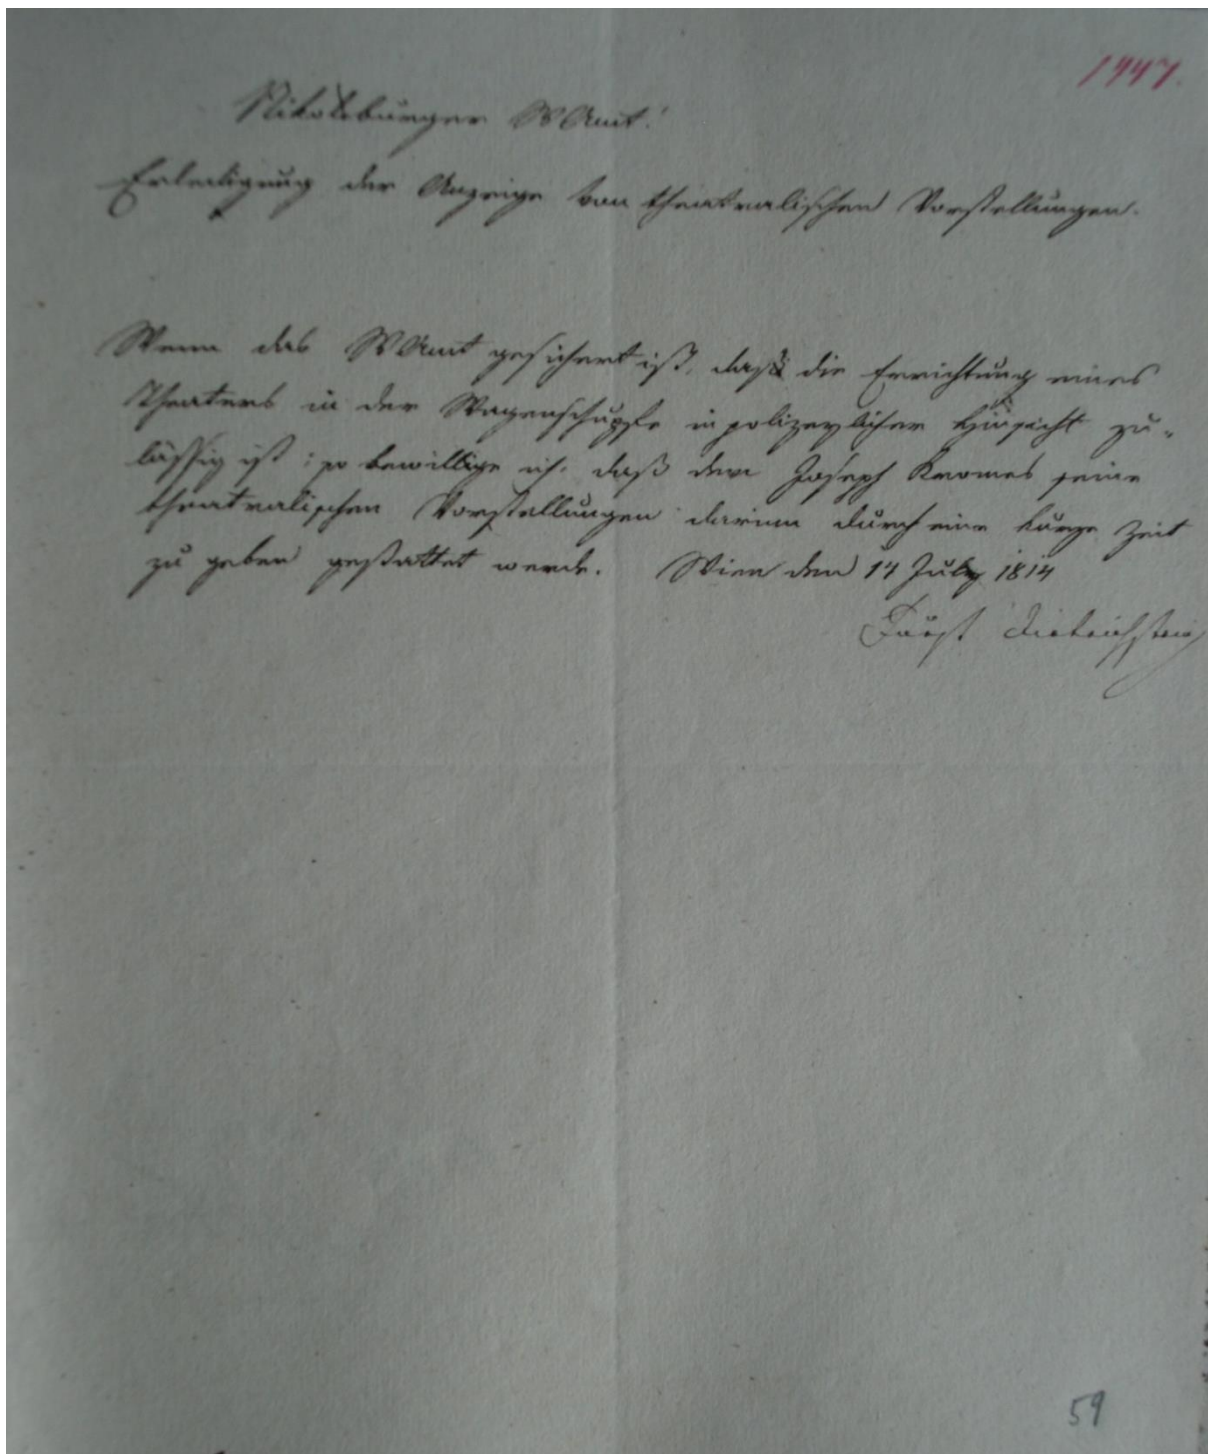 1447.
Nikolsburger WAmt!
Erledigung der Anzeige von theatralischen Vorstellungen.
Wenn das WAmt gesichert ist, daß die Errichtung eines
Theaters in der Wagenschupfe in polizeylicher Hinsicht zu-
lässig ist: so bewillige ich, daß dem Joseph Kromes seine
theatralischen Vorstellungen darinn durch eine kurze Zeit
zu geben gestattet werde. Wien den 14 July 1814
Fürst Dietrichstein
59